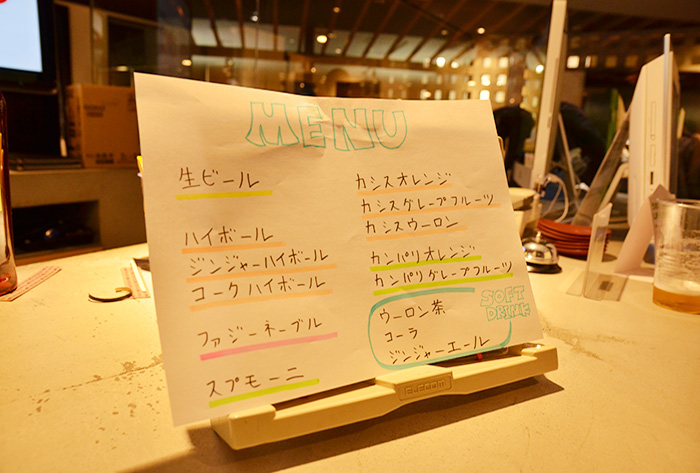 MENU
生ビール
ハイボール
ジンジャーハイボール
コークハイボール
ファジーネーブル
スプモーニ
カシスオレンジ
カシスグレープフルーツ
カシスウーロン
カンパリオレンジ
カンパリグレープフルーツ
SOFT
DRINK
ウーロン茶
コーラ
ジンジャーエール
ELECOM